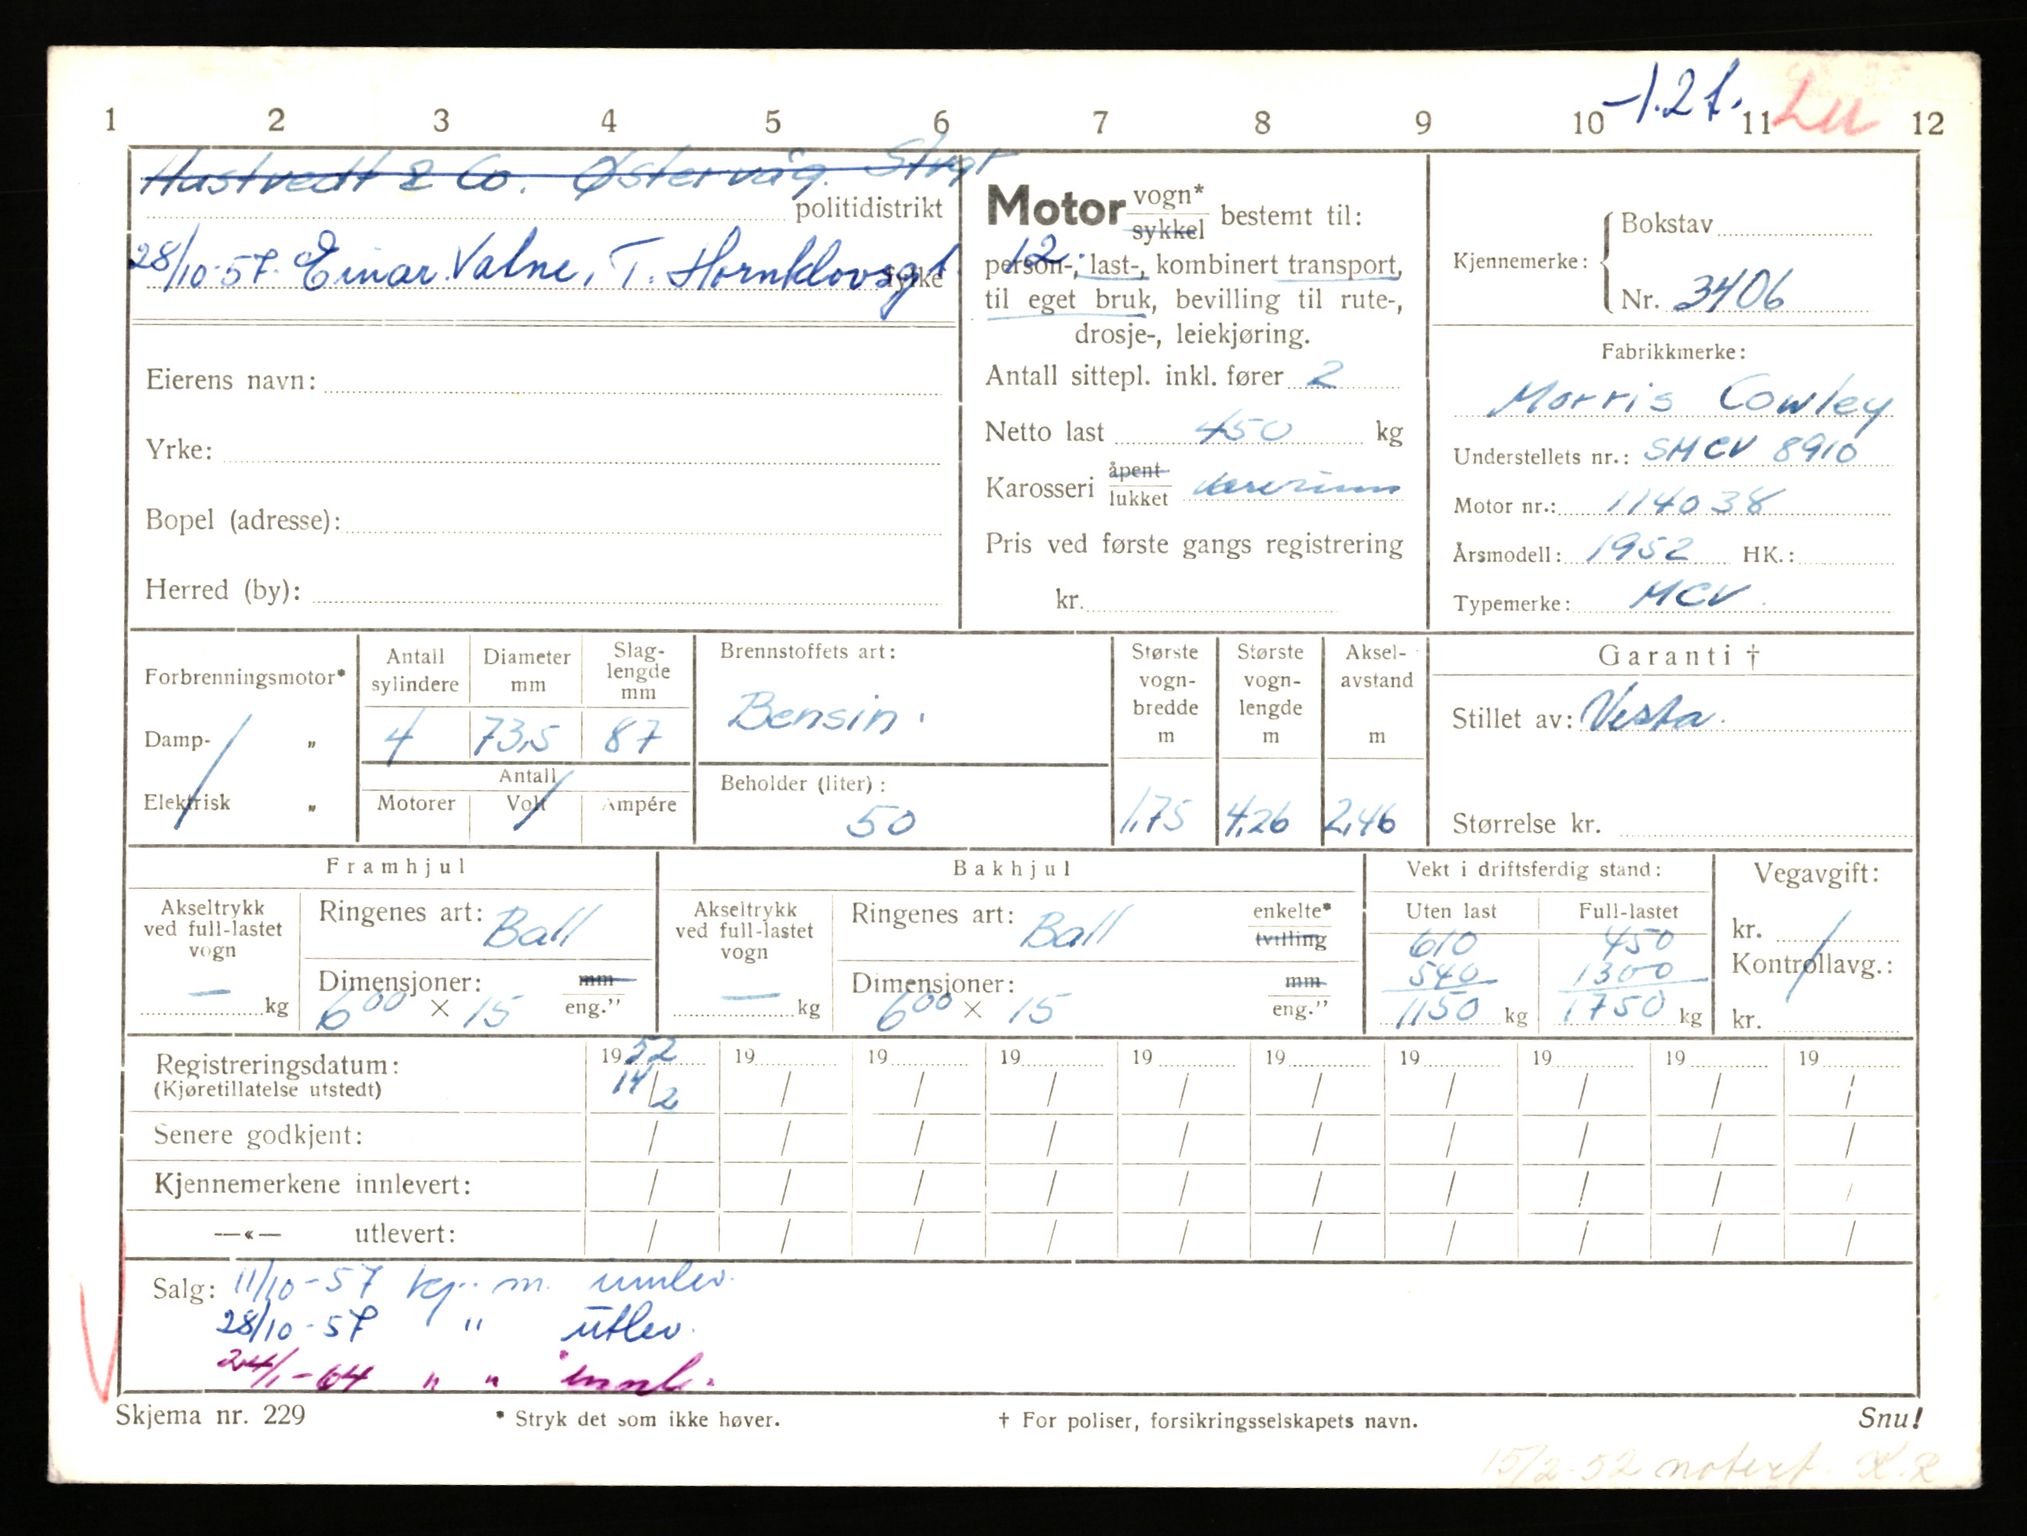 1 2 3 4 5 6 7 8 9 10 11 12
-1.2t.
Hustvedt & Co. Østervåg. Stvgr
politidistrikt
28/10-57. Einar Valne, T. Hornklovsgt. 12.
fylke
Eierens navn:
Yrke:
Bopel (adresse):
Herred (by):
Motor vogn* sykkel bestemt til:
person-, last-, kombinert transport,
til eget bruk, bevilling til rute-,
drosje-, leiekjøring.
Antall sittepl. inkl. fører 2
Netto last 450 kg
Karosseri åpent lukket varerum
Pris ved første gangs registrering
kr.
Kjennemerke:
Bokstav
Nr. 3406
Fabrikkmerke:
Morris Cowley
Understellets nr.: SMCV 8910
Motor nr.: 114038
Årsmodell: 1952 HK.:
Typemerke: MCV.
Forbrenningsmotor*
Damp- "
Elektrisk "
Antall sylindere 4
Diameter mm 73,5
Slag-lengde mm 87
Antall
Motorer Volt Ampére
Brennstoffets art:
Bensin.
Beholder (liter):
50
Største vogn-bredde m 1,75
Største vogn-lengde m 4,26
Aksel-avstand m 2,46
Garanti †
Stillet av: Vesta.
Størrelse kr.
Framhjul
Akseltrykk ved full-lastet vogn
— kg
Ringenes art: Ball
Dimensjoner: mm
6⁰⁰ × 15 eng."
Bakhjul
Akseltrykk ved full-lastet vogn
— kg
Ringenes art: Ball enkelte* tvilling
Dimensjoner: mm
6⁰⁰ × 15 eng."
Vekt i driftsferdig stand:
Uten last Full-lastet
610 450
540 1300
1150 kg 1750 kg
Vegavgift:
kr.
Kontrollavg.:
kr.
Registreringsdatum: 1952 19 19 19 19 19 19 19 19 19
(Kjøretillatelse utstedt) 14/2 / / / / / / / / /
Senere godkjent: / / / / / / / / / /
Kjennemerkene innlevert: / / / / / / / / / /
—«— utlevert: / / / / / / / / / /
Salg: 11/10-57 kj. m. innlev.
28/10-57 " utlev.
24/1-64 " " innl.
Skjema nr. 229
* Stryk det som ikke høver.
† For poliser, forsikringsselskapets navn.
Snu!
15/2-52 notert. K.R